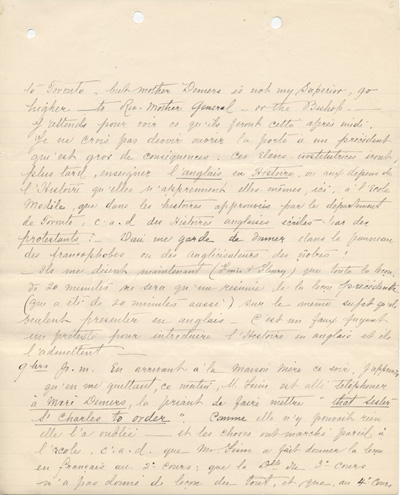 to Toronto – but mother Demers is not my Superior, go
higher – to Rev. Mother General – or the Bishop –
J'attends pour voir ce qu'ils feront cette après midi.
Je ne crois pas devoir ouvrir la porte à un précédent
qui est gros de conséquences: ces élèves institutrices iront,
plus tard, enseigner l'anglais en Histoire, ou aux dépens de
l'Histoire qu'elles n'apprennent elles mêmes, ici, à l'Ecole
Modèle, que dans les histoires approuvées par le département
de Toronto, c.à.d. des Histoires anglaises écrites par des
protestants! – Dieu me garde de donner dans le panneau
des francophobes ou des anglicisateurs des nôtres!
– Ils me disent maintenant ( & Fleury) que toute la leçon
de 20 minutes ne sera qu'un résumé de la leçon précédente
(qui a été de 20 minutes aussi) sur le même sujet qu'ils
veulent présenter en anglais – C'est un faux fuyant
un prétexte pour introduire l'Histoire en anglais et ils
l'admettent –
9 hrs p.m. En arrivant à la Maison Mère ce soir, j'apprends
qu'en me quittant, ce matin, M. est allé téléphoner
à Mère Demers, la priant de faire mettre "that sister
St Charles to order". Comme elle n'y pouvait rien
elle l'a oublié – et les choses ont marché pareil à
l'école. c.à.d. que M. a fait donner la leçon
en français au 2e cours; que la du 3e cours
n'a pas donné de leçon du tout, et que, au 4e cours